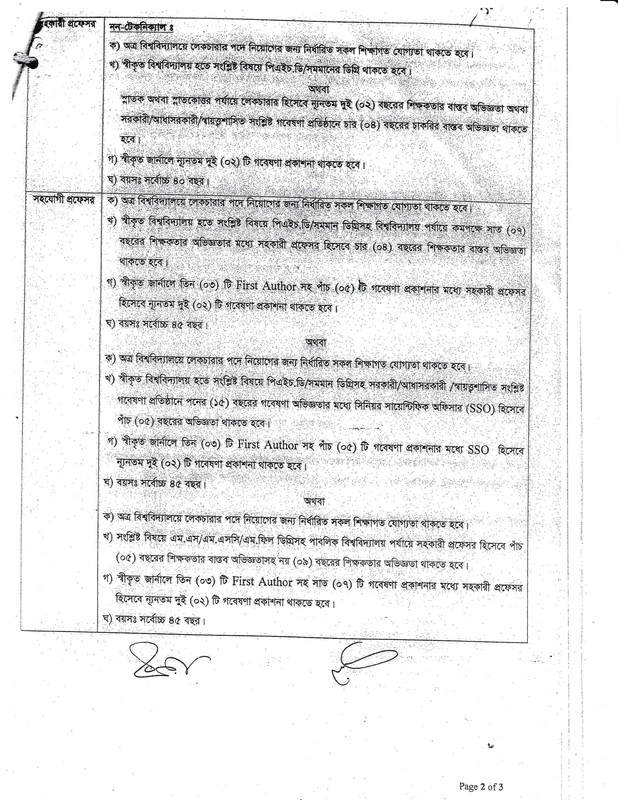 সহকারী প্রফেসর
নন-টেকনিক্যাল ঃ
ক) অত্র বিশ্ববিদ্যালয়ে লেকচারার পদে নিয়োগের জন্য নির্ধারিত সকল শিক্ষাগত যোগ্যতা থাকতে হবে।
খ) স্বীকৃত বিশ্ববিদ্যালয় হতে সংশ্লিষ্ট বিষয়ে পিএইচ.ডি/সমমানের ডিগ্রি থাকতে হবে।
অথবা
স্নাতক অথবা স্নাতকোত্তর পর্যায়ে লেকচারার হিসেবে ন্যূনতম দুই (০২) বছরের শিক্ষকতার বাস্তব অভিজ্ঞতা অথবা
সরকারী/আধাসরকারী/স্বায়ত্বশাসিত সংশ্লিষ্ট গবেষণা প্রতিষ্ঠানে চার (০৪) বছরের চাকরির বাস্তব অভিজ্ঞতা থাকতে
হবে।
গ) স্বীকৃত জার্নালে ন্যূনতম দুই (০২) টি গবেষণা প্রকাশনা থাকতে হবে।
ঘ) বয়সঃ সর্বোচ্চ ৪০ বছর।
সহযোগী প্রফেসর
ক) অত্র বিশ্ববিদ্যালয়ে লেকচারার পদে নিয়োগের জন্য নির্ধারিত সকল শিক্ষাগত যোগ্যতা থাকতে হবে।
খ) স্বীকৃত বিশ্ববিদ্যালয় হতে সংশ্লিষ্ট বিষয়ে পিএইচ.ডি/সমমান ডিগ্রিসহ বিশ্ববিদ্যালয় পর্যায়ে কমপক্ষে সাত (০৭)
বছরের শিক্ষকতার অভিজ্ঞতার মধ্যে সহকারী প্রফেসর হিসেবে চার (০৪) বছরের শিক্ষকতার বাস্তব অভিজ্ঞতা
থাকতে হবে।
গ) স্বীকৃত জার্নালে তিন (০৩) টি First Author সহ পাঁচ (০৫) টি গবেষণা প্রকাশনার মধ্যে সহকারী প্রফেসর
হিসেবে ন্যূনতম দুই (০২) টি গবেষণা প্রকাশনা থাকতে হবে।
ঘ) বয়সঃ সর্বোচ্চ ৪৫ বছর।
অথবা
ক) অত্র বিশ্ববিদ্যালয়ে লেকচারার পদে নিয়োগের জন্য নির্ধারিত সকল শিক্ষাগত যোগ্যতা থাকতে হবে।
খ) স্বীকৃত বিশ্ববিদ্যালয় হতে সংশ্লিষ্ট বিষয়ে পিএইচ.ডি/সমমান ডিগ্রিসহ সরকারী/আধাসরকারী /স্বায়ত্বশাসিত সংশ্লিষ্ট
গবেষণা প্রতিষ্ঠানে পনের (১৫) বছরের গবেষণা অভিজ্ঞতার মধ্যে সিনিয়র সায়েন্টিফিক অফিসার (SSO) হিসেবে
পাঁচ (০৫) বছরের অভিজ্ঞতা থাকতে হবে।
গ) স্বীকৃত জার্নালে তিন (০৩) টি First Author সহ পাঁচ (০৫) টি গবেষণা প্রকাশনার মধ্যে SSO হিসেবে
ন্যূনতম দুই (০২) টি গবেষণা প্রকাশনা থাকতে হবে।
ঘ) বয়সঃ সর্বোচ্চ ৪৫ বছর।
অথবা
ক) অত্র বিশ্ববিদ্যালয়ে লেকচারার পদে নিয়োগের জন্য নির্ধারিত সকল শিক্ষাগত যোগ্যতা থাকতে হবে।
খ) সংশ্লিষ্ট বিষয়ে এম.এস/এম.এসসি/এম.ফিল ডিগ্রিসহ পাবলিক বিশ্ববিদ্যালয় পর্যায়ে সহকারী প্রফেসর হিসেবে পাঁচ
(০৫) বছরের শিক্ষকতার বাস্তব অভিজ্ঞতাসহ নয় (০৯) বছরের শিক্ষকতার অভিজ্ঞতা থাকতে হবে।
গ) স্বীকৃত জার্নালে তিন (০৩) টি First Author সহ সাত (০৭) টি গবেষণা প্রকাশনার মধ্যে সহকারী প্রফেসর
হিসেবে ন্যূনতম দুই (০২) টি গবেষণা প্রকাশনা থাকতে হবে।
ঘ) বয়সঃ সর্বোচ্চ ৪৫ বছর।
Page 2 of 3